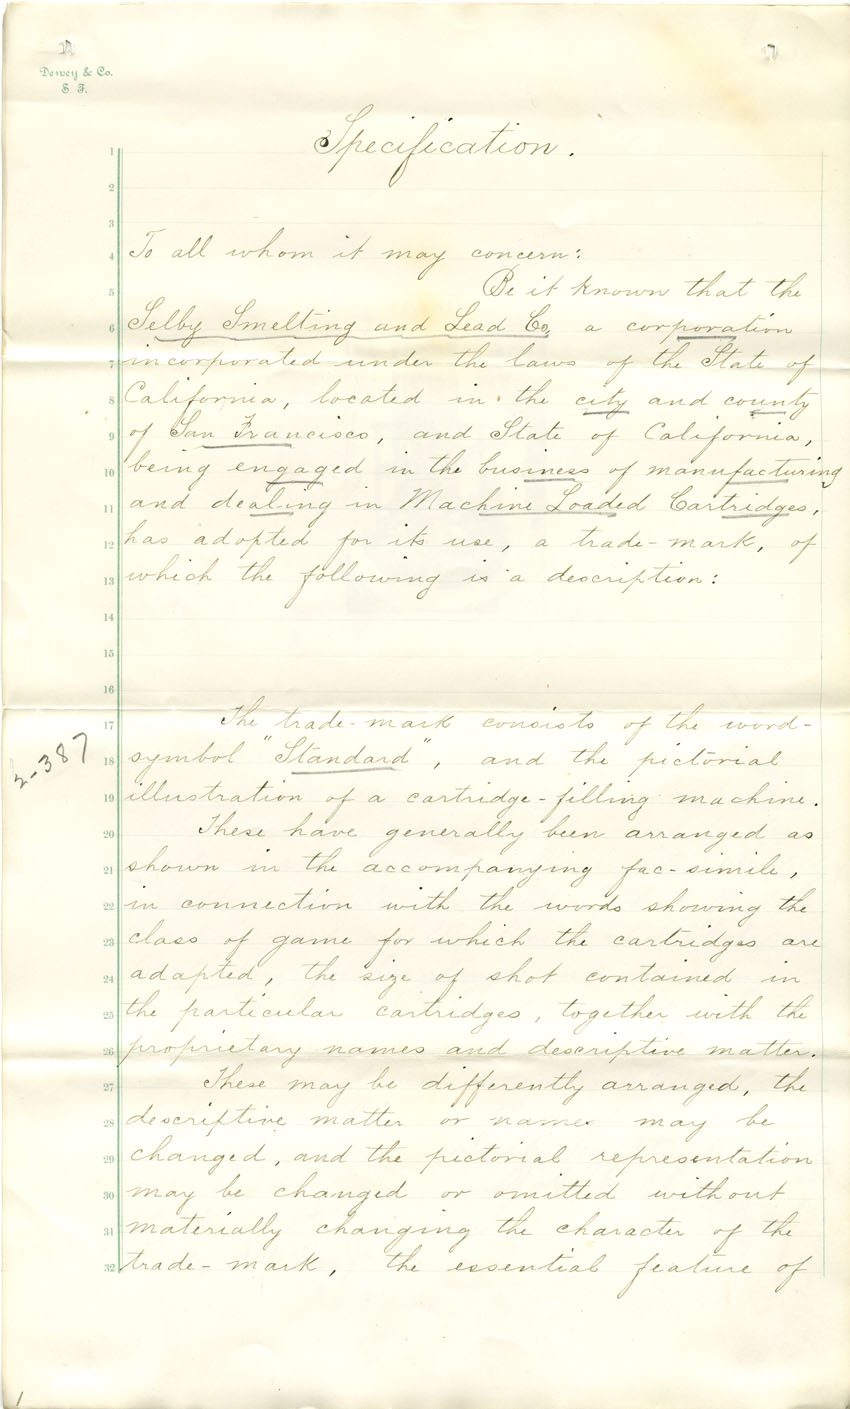 Dewey & Co.
S. F.
Specification.
1
2
3
4 To all whom it may concern:
5 Be it known that the
6 Selby Smelting and Lead Co, a corporation
7 incorporated under the laws of the State of
8 California, located in the city and county
9 of San Francisco, and State of California,
10 being engaged in the business of manufacturing
11 and dealing in Machine Loaded Cartridges,
12 has adopted for its use, a trade-mark, of
13 which the following is a description:
14
15
16
17 The trade-mark consists of the word-
2-387
18 symbol "Standard", and the pictorial
19 illustration of a cartridge-filling machine.
20 These have generally been arranged as
21 shown in the accompanying fac-simile,
22 in connection with the words showing the
23 class of game for which the cartridges are
24 adapted, the size of shot contained in
25 the particular cartridges, together with the
26 proprietary names and descriptive matter.
27 These may be differently arranged, the
28 descriptive matter or names may be
29 changed, and the pictorial representation
30 may be changed or omitted without
31 materially changing the character of the
32 trade-mark, the essential feature of
1